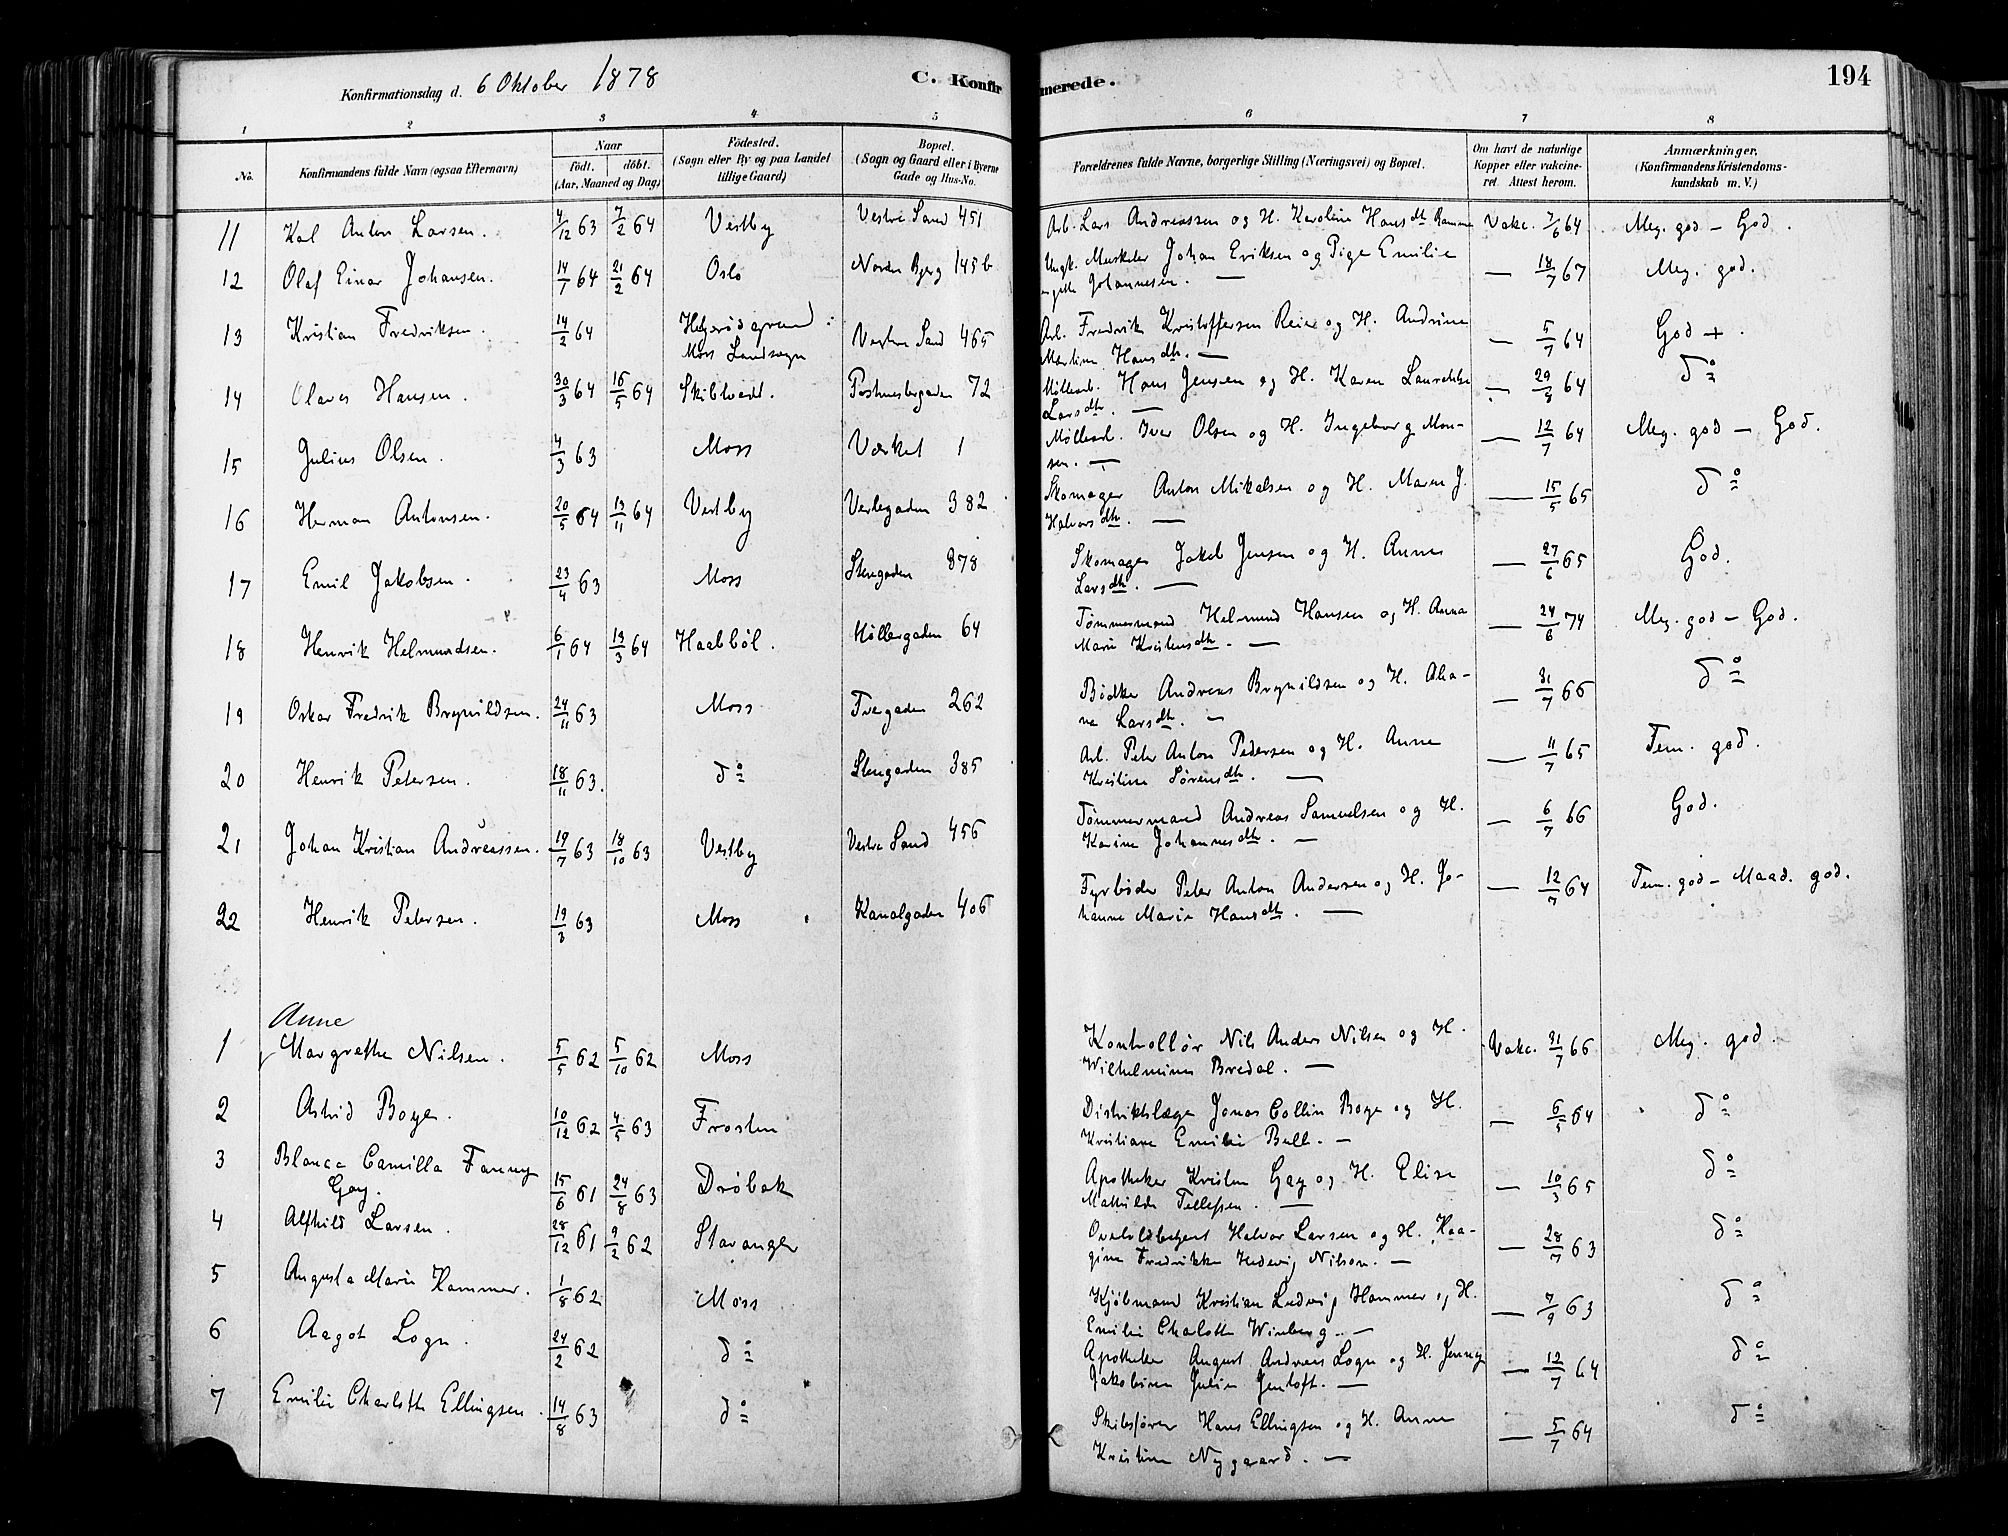 Konfirmationsdag d. 6 Oktober 1878
C. Konfirmerede.
194
1 2 3 4 5 6 7 8
No.
Konfirmandens fulde Navn (ogsaa Efternavn)
Naar
födt. döbt.
(Aar, Maaned og Dag)
Födested.
(Sogn eller By og paa Landet
tillige Gaard)
Bopæl.
(Sogn og Gaard eller i Byerne
Gade og Hus-No.
Forældrenes fulde Navne, borgerlige Stilling (Næringsvei) og Bopæl.
Om havt de naturlige
Kopper eller vakcine-
ret. Attest herom.
Anmærkninger,
(Konfirmandens Kristendoms-
kundskab m. V.)
11 Karl Anton Larsen. 4/12 63 7/2 64 Vestby Vestre Sand 451 Arb. Lars Andreassen og H. Karoline Hansdtr Ramme Vakc. 7/6 64 Meg. god – God.
12 Olaf Einar Johansen. 14/7 64 21/2 64 Oslo Nordre Bjerg 145 b Ungk. Musketer Johan Eriksen og Pige Emilie
Johannesen. — — 18/7 67 Meg. god.
13 Kristian Fredriksen. 14/2 64 Helgerödgrund i
Moss Landsogn Vestre Sand 465 Arb. Fredrik Kristoffersen Reier og H. Andrine
Martine Hansdtr. — — 5/7 64 God +.
14 Olaves Hansen. 30/3 64 16/5 64 Skibtvedt. Postmestergaden 72 Möllearb. Hans Jensen og H. Karen
Larsdtr. — — 29/8 64 do
15 Julius Olsen. 4/3 63 Moss Værket 1 Möllearb. Iver Olsen og H. Ingeborg Mon-
sen. — — 12/7 64 Meg. god – God.
16 Herman Antonsen. 20/5 64 13/11 64 Vestby Verlegaden 382 Skomager Anton Mikalsen og H. Maren J.
Halvorsdtr. — — 15/5 65 do
17 Emil Jakobsen. 23/4 63 Moss Stengaden 378 Skomager Jakob Jensen og H. Anne
Larsdtr. — — 27/6 65 God.
18 Henrik Helmundsen. 6/1 64 13/3 64 Haabböl. Möllergaden 64 Tömmermand Helmund Hansen og H. Anna
Marie Kristensdtr. — — 24/6 74 Meg. god – God.
19 Oskar Fredrik Brynildsen. 24/11 63 Moss Tvergaden 262 Bödker Andreas Brynildsen og H. Olia-
na Larsdtr. — — 31/7 66 do
20 Henrik Petersen. 18/11 63. do Stengaden 385 Arb. Peter Anton Pedersen og H. Anne
Kristine Sörensdtr. — — 11/7 65 Tem. god.
21 Johan Kristian Andreassen. 19/7 63 18/10 63 Vestby Vestre Sand 456 Tömmermand Andreas Samuelsen og H.
Karine Johannesdtr. — — 6/7 66 God.
22 Henrik Petersen. 19/3 63 Moss Kanalgaden 406 Fyrböder Peter Anton Andersen og H. Jo-
hanne Marie Hansdtr. — — 12/7 64 Tem. god – Maad. god.
Anne
1 Margrethe Nilsen. 5/5 62 5/10 62 Moss Kontrollör Nils Anders Nilsen og H.
Wilhelmine Bredal. — Vakc. 31/7 66 Meg. god.
2 Astrid Boye. 10/12 62 4/5 63 Frosten Distriktslæge Jonas Collin Boye og H.
Kristiane Emilie Bull. — — 6/5 64 do
3 Blanca Camilla Fanny
Gay. 15/6 61 24/8 63 Dröbak Apotheker Kristen Gay og H. Elise
Mathilde Tellefsen. — — 10/3 65 do
4 Alfhild Larsen. 28/12 61 9/2 62 Stavanger Halvor Larsen og H. Haa-
gine Fredrikke Hedevig Nilson. — — 28/7 63 do
5 Augusta Marie Hammer. 1/8 62 Moss Kjöbmand Kristian Ludvig Hammer og H.
Emilie Charlotte Winberg. — — 7/9 63 do
6 Aagot Logn. 24/2 62 do Apotheker August Andreas Logn og H. Jenny
Jakobine Julie Jentoft. — — 12/7 64 do
7 Emilie Charlotte Ellingsen. 14/8 63 do Skibsförer Hans Ellingsen og H. Anne
Kristine Nygaard. — — 5/7 64 do